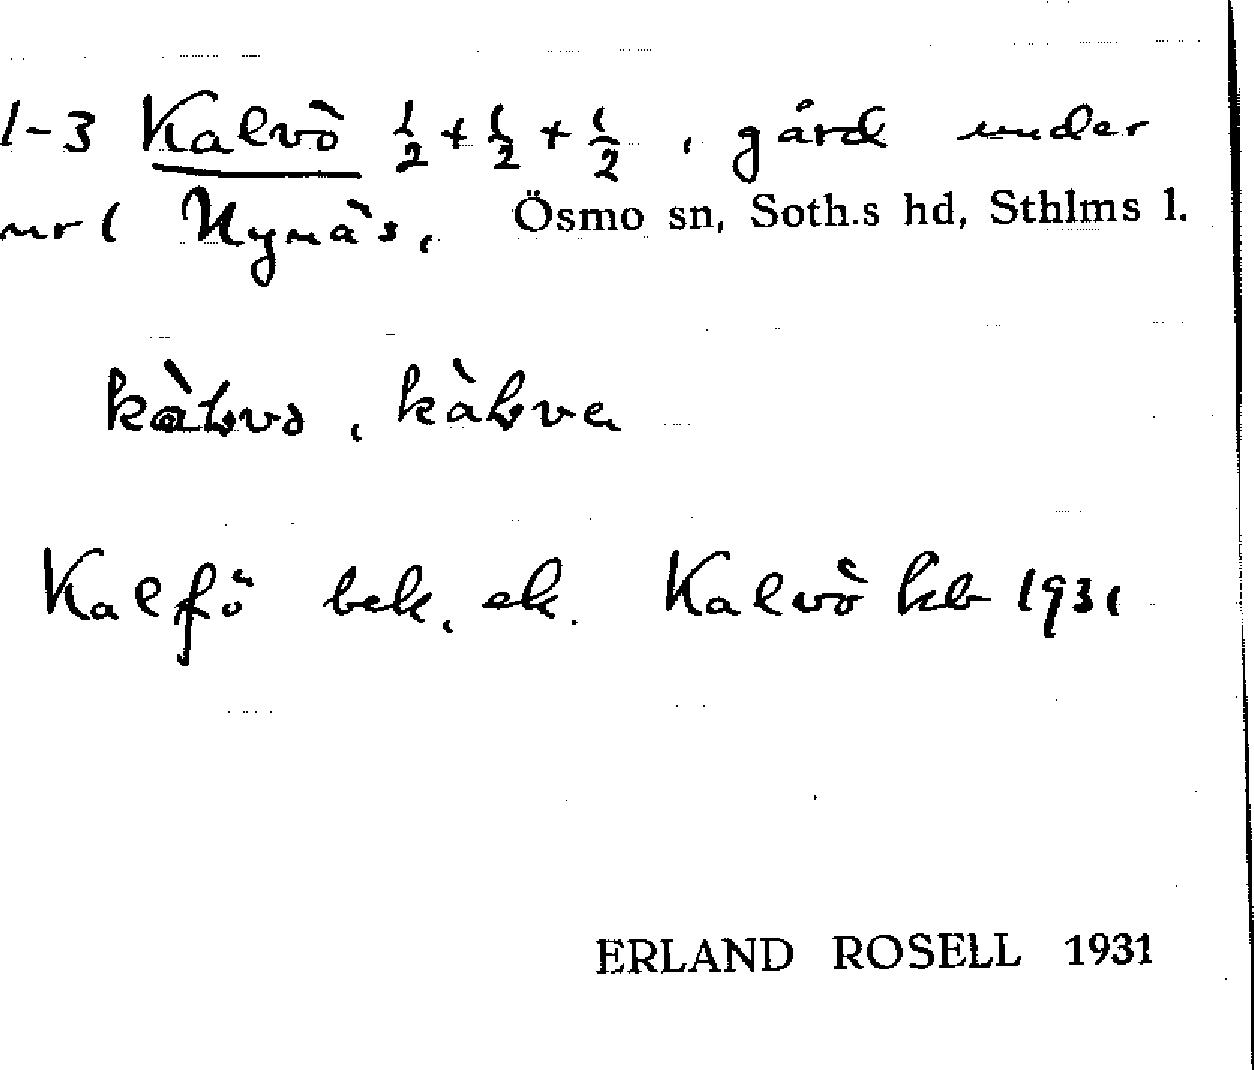 1-3 Kalvö ½ + ½ + ½, gård under
nr 1 Nynäs, Ösmo sn, Soth.s hd, Sthlms l.
Kalfö bek. ek. Kalvö kb 1931
ERLAND ROSELL 1931